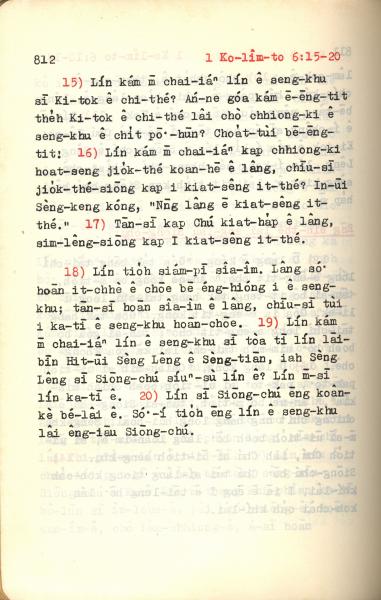 812 1 Ko-lîm-to 6:15-20
15) Lín kám m̄ chai-iáⁿ lín ê seng-khu
sī Ki-tok ê chi-thé? Án-ne góa kám ē-ēng-tit
the̍h Ki-tok ê chi-thé lâi chò chhiong-ki ê
seng-khu ê chi̍t pō·-hūn? Choa̍t-tùi bē-ēng-
tit! 16) Lín kám m̄ chai-iáⁿ kap chhiong-ki
hoat-seng jio̍k-thé koan-hē ê lâng, chīu-sī
jio̍k-thé-siōng kap i kiat-sêng it-thé? In-ūi
Sèng-keng kóng, "Nn̄g lâng ē kiat-sêng it-
thé." 17) Tān-sī kap Chú kiat-ha̍p ê lâng,
sim-lêng-siōng kap I kiat-sêng it-thé.
18) Lín tio̍h siám-pī sîa-îm. Lâng só·
hoān it-chhè ê chōe bē éng-hióng i ê seng-
khu; tān-sī hoān sîa-îm ê lâng, chīu-sī tùi
i ka-tī ê seng-khu hoān-chōe. 19) Lín kám
m̄ chai-iáⁿ lín ê seng-khu sī tòa tī lín lāi-
bīn Hit-ūi Sèng Lêng ê Sèng-tiān, iah Sèng
Lêng sī Siōng-chú síuⁿ-sù lín ê? Lín m̄-sī
lín ka-tī ê. 20) Lín sī Siōng-chú ēng koân-
kè bé-lâi ê. Só·-í tio̍h ēng lín ê seng-khu
lâi êng-iāu Siōng-chú.